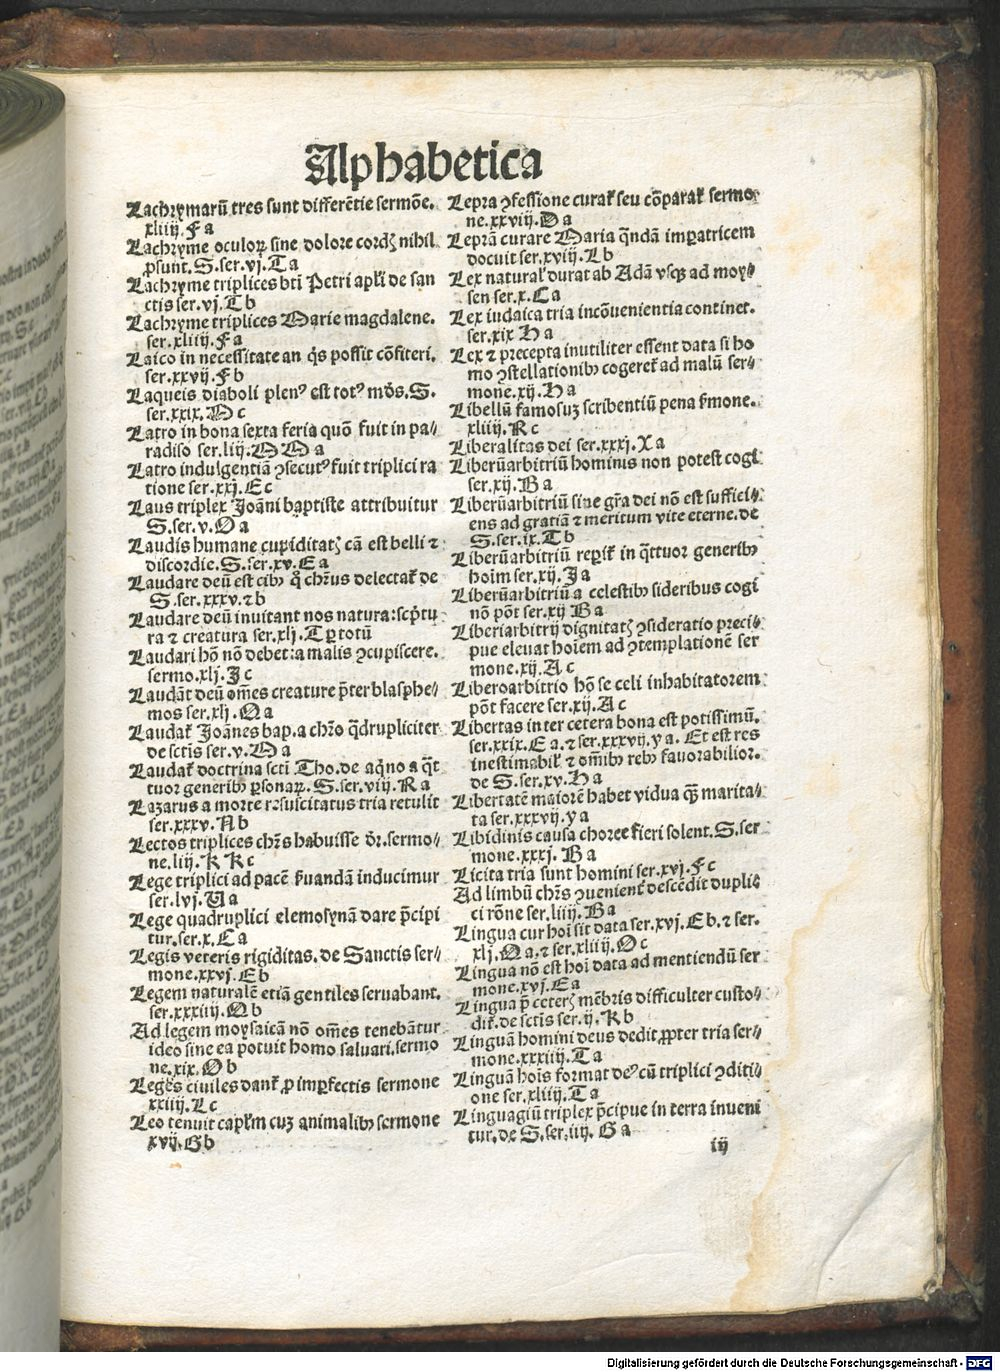 Alphabetica
Lachrymarū tres sunt differētie sermōe.
xliiij. F a
Lachryme oculoꝝ sine dolore cordꝭ nihil
ꝓsunt. S. ser. vj. T a
Lachryme triplices bti Petri apłi de san
ctis ser. vj. T b
Lachryme triplices Marie magdalene.
ser. xliiij. F a
Laico in necessitate an q̄s possit cōfiteri.
ser. xxvij. F b
Laqueis diaboli plenꝰ est totꝰ mōs. S.
ser. xxix. N c
Latro in bona sexta feria quō fuit in pa⸗
radiso ser. liij. M M a
Latro indulgentiā ꝯsecutꝰ fuit triplici ra
tione ser. xxj. E c
Laus triplex Joāni baptiste attribuitur
S. ser. v. O a
Laudis humane cupiditatꝭ cā est belli ⁊
discordie. S. ser. xv. E a
Laudare deū est cibꝰ q̊ chr̄us delectat᷑ de
S. ser. xxxv. ⁊ b
Laudare deū inuitant nos natura: scp̄tu
ra ⁊ creatura ser. xlj. T ꝑ totū
Laudari hō nō debet: a malis ꝯcupiscere.
sermo. xlj. J c
Laudāt deū om̄es creature p̄ter blasphe⸗
mos ser. xlj. Q a
Laudat᷑ Joānes bap. a chr̄o q̄drupliciter
de sctis ser. v. M a
Laudat᷑ doctrina scti Tho. de aq̄no a q̄t
tuor generibꝰ ꝑsonaꝝ. S. ser. viij. R a
Lazarus a morte resuscitatus tria retulit
ser. xxxv. N b
Lectos triplices chr̄s habuisse dr̄. sermo⸗
ne. liij. K K c
Lege triplici ad pacē ẜuandā inducimur
ser. lvj. V a
Lege quadruplici elemosynā dare p̄cipi
tur. ser. x. C a
Legis veteris rigiditas. de Sanctis ser⸗
mone. xxvj. E b
Legem naturalē etiā gentiles seruabant.
ser. xxxiiij. Q b
Ad legem moysaicā nō om̄es tenebātur
ideo sine ea potuit homo saluari. sermo
ne. xix. O b
Leges ciuiles dant᷑ ꝓ imꝑfectis sermone
xxiiij. L c
Leo tenuit capłm cuȝ animalibꝰ sermone
xvij. G b
Lepra ꝯfessione curat᷑ seu cōparat᷑ sermo
ne. xxviij. D a
Leprā curare Maria q̄ndā imꝑatricem
docuit ser. xviij. L b
Lex natural᷑ durat ab Adā vsqꝫ ad moy⸗
sen ser. x. C a
Lex iudaica tria incōuenientia continet.
ser. xix H a
Lex ⁊ precepta inutiliter essent data si ho
mo ꝯstellationibꝰ cogeret᷑ ad malū ser⸗
mone. xij. H a
Libellū famosuȝ scribentiū pena ẜmone.
xliiij. R c
Liberalitas dei ser. xxxj. X a
Liberūarbitriū hominis non potest cogi
ser. xij. B a
Liberūarbitriū sine gr̄a dei nō est suffici⸗
ens ad gratiā ⁊ meritum vite eterne. de
S. ser. ix. T b
Liberūarbitriū reꝑit᷑ in q̄ttuor generibꝰ
hoim̄ ser. xij. J a
Liberūarbitriū a celestibꝰ sideribus cogi
nō pōt ser. xij B a
Liberiarbitrij dignitatꝭ ꝯsideratio preci⸗
pue eleuat hoīem ad ꝯtemplationē ser
mone. xij. A c
Liberoarbitrio hō se celi inhabitatorem
pōt facere ser. xij. A c
Libertas inter cetera bona est potissimū.
ser. xxix. E a. ⁊ ser. xxxvij. y a. Et est res
inestimabil᷑ ⁊ om̄ibꝰ rebꝰ fauorabilior.
de S. ser. xv. H a
Libertatē maiorē habet vidua qȝ̄ marita⸗
ta ser. xxxvij. y a
Libidinis causa choree fieri solent. S. ser
mone. xxxj. B a
Licita tria sunt homini ser. xvj. F c
Ad limbū chr̄s ꝯuenient᷑ descēdit dupli⸗
ci rōne ser. liiij. B a
Lingua cur hoī sit data ser. xvj. E b. ⁊ ser.
xlj. Q a. ⁊ ser. xliiij. O c
Lingua nō est hoī data ad mentiendū ser
mone. xvj. E a
Lingua p̄ ceterꝭ mēbris difficulter custo⸗
dit᷑. de sctis ser. ij. K b
Linguā homini deus dedit ꝓpter tria ser⸗
mone. xxxiiij. T a
Linguā hoīs format deꝰ cū triplici ꝯditi⸗
one ser. xliiij. T a
Linguagiū triplex p̄cipue in terra inueni
tur. de S. ser. iij. G a
iij
Digitalisierung gefördert durch die Deutsche Forschungsgemeinschaft - DFG